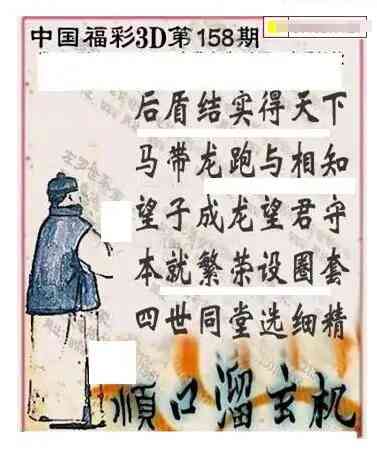 中国福彩3D第158期
后盾结实得天下
马带龙跑与相知
望子成龙望君守
本就繁荣设圈套
四世同堂选细精
顺口溜玄机